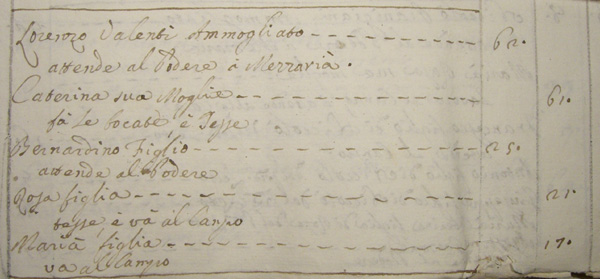 Lorenzo Valenti Ammogliato 62.
attende al Podere à Mezzarià.
Caterina sua Moglie 61.
fà Le focate è Tesse
Bernardino Figlio 25.
attende al Podere
Rosa figlia 21.
tesse è và al Campo
Maria figlia 17.
va al Campo